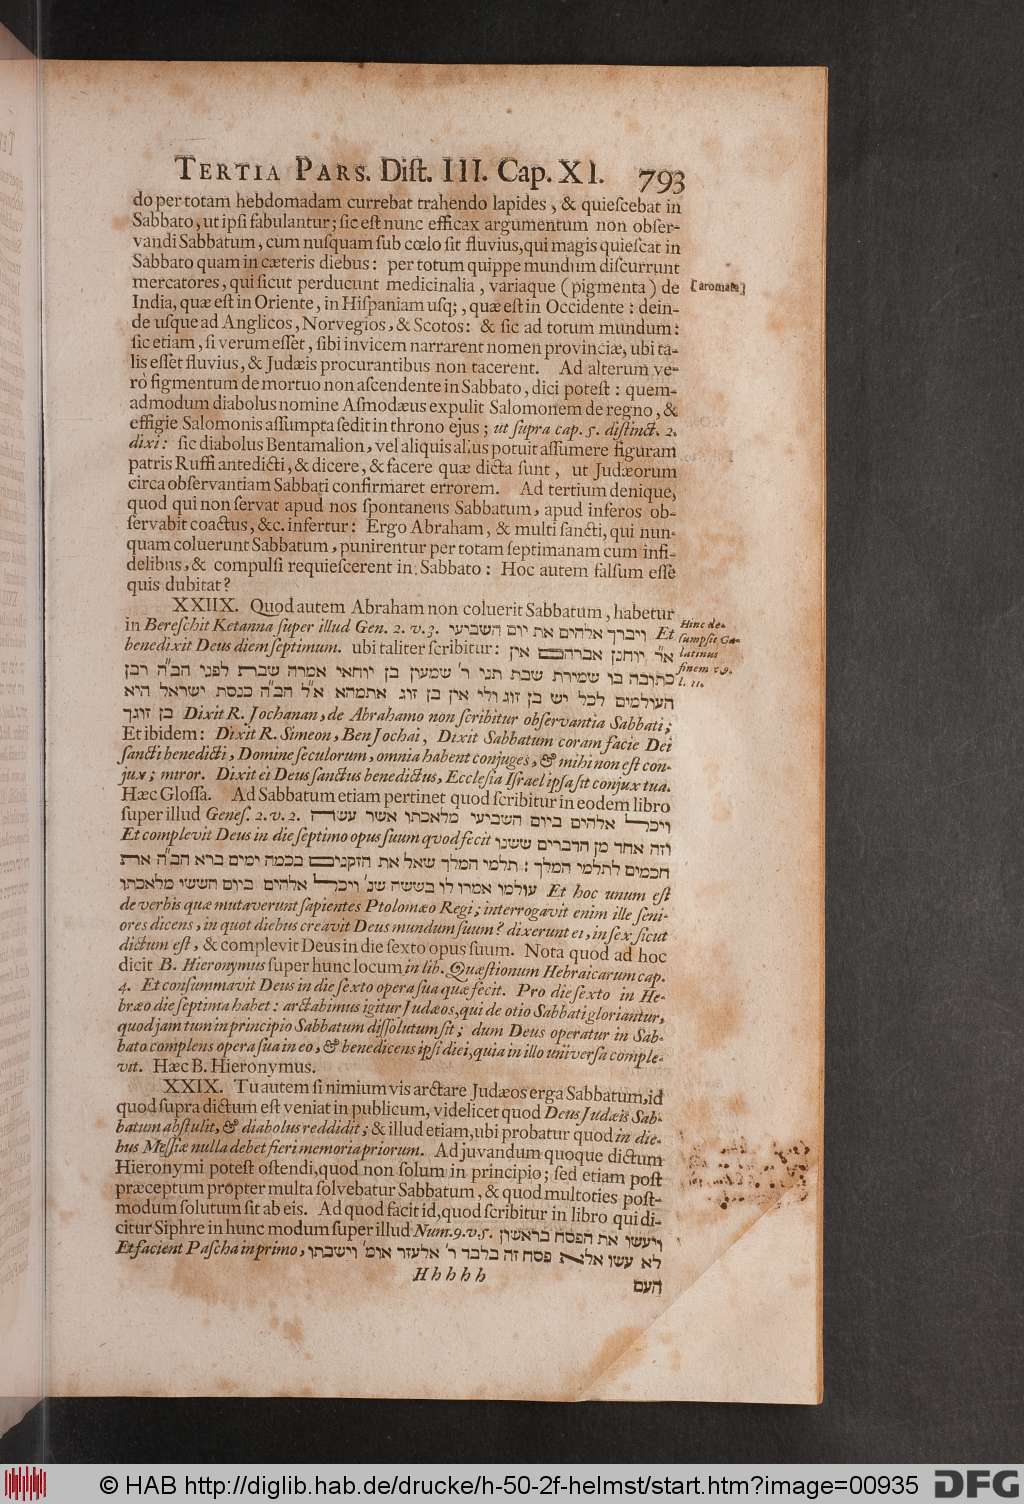 TERTIA PARS. Diſt. III. Cap. XI. 793
do per totam hebdomadam currebat trahendo lapides, & quieſcebat in
Sabbato, ut ipſi fabulantur; ſic eſt nunc efficax argumentum non obſer-
vandi Sabbatum, cum nuſquam ſub cœlo ſit fluvius, qui magis quieſcat in
Sabbato quam in cæteris diebus: per totum quippe mundum diſcurrunt
mercatores, qui ſicut perducunt medicinalia, variaque (pigmenta) de
[aromata]
India, quæ eſt in Oriente, in Hiſpaniam uſq;, quæ eſt in Occidente: dein-
de uſque ad Anglicos, Norvegios, & Scotos: & ſic ad totum mundum:
ſic etiam, ſi verum eſſet, ſibi invicem narrarent nomen provinciæ, ubi ta-
lis eſſet fluvius, & Judæis procurantibus non tacerent. Ad alterum ve-
rò figmentum de mortuo non aſcendente in Sabbato, dici poteſt: quem-
admodum diabolus nomine Aſmodæus expulit Salomonem de regno, &
effigie Salomonis aſſumpta ſedit in throno ejus; ut ſupra cap. 5. diſtinct. 2.
dixi: ſic diabolus Bentamalion, vel aliquis alius potuit aſſumere figuram
patris Ruffi antedicti, & dicere, & facere quæ dicta ſunt, ut Judæorum
circa obſervantiam Sabbati confirmaret errorem. Ad tertium denique,
quod qui non ſervat apud nos ſpontaneus Sabbatum, apud inferos ob-
ſervabit coactus, &c. infertur: Ergo Abraham, & multi ſancti, qui nun-
quam coluerunt Sabbatum, punirentur per totam ſeptimanam cum infi-
delibus, & compulſi requieſcerent in Sabbato: Hoc autem falſum eſſe
quis dubitat?
XXIIX. Quod autem Abraham non coluerit Sabbatum, habetur
in Bereſchit Ketanna ſuper illud Gen. 2. v. 3. ויברך אלהים את יום השביעי Et
Hinc de-
ſumpſit Ga-
latinus
finem c. 9.
l. 11.
benedixit Deus diem ſeptimum. ubi taliter ſcribitur: א״ר יוחנן אברהם אין
כתובה בו שמירת שבת תני ר׳ שמעון בן יוחאי אמרה שבת לפני הב״ה רבן
העולמים לכל יש בן זוג ולי אין בן זוג אתמהא א״ל הב״ה כנסת ישראל היא
בן זוגך Dixit R. Jochanan, de Abrahamo non ſcribitur obſervantia Sabbati;
Et ibidem: Dixit R. Simeon, Ben Jochai, Dixit Sabbatum coram facie Dei
ſancti benedicti, Domine ſeculorum, omnia habent conjuges, & mihi non eſt con-
jux; miror. Dixit ei Deus ſanctus benedictus, Eccleſia Iſrael ipſa ſit conjux tua.
Hæc Gloſſa. Ad Sabbatum etiam pertinet quod ſcribitur in eodem libro
ſuper illud Geneſ. 2. v. 2. ויכל אלהים ביום השביעי מלאכתו אשר עשה
Et complevit Deus in die ſeptimo opus ſuum quod fecit וזה אחד מן הדברים ששנו
חכמים לתלמי המלך: תלמי המלך שאל את הזקנים בכמה ימים ברא הב״ה את
עולמו אמרו לו בששה שנ׳ ויכל אלהים ביום הששי מלאכתו Et hoc unum eſt
de verbis quæ mutaverunt ſapientes Ptolomæo Regi; interrogavit enim ille ſeni-
ores dicens, in quot diebus creavit Deus mundum ſuum? dixerunt ei, in ſex ſicut
dictum eſt, & complevit Deus in die ſexto opus ſuum. Nota quod ad hoc
dicit B. Hieronymus ſuper hunc locum in lib. Quæſtionum Hebraicarum cap.
4. Et conſummavit Deus in die ſexto opera ſua quæ fecit. Pro die ſexto in He-
bræo die ſeptima habet: arctabimus igitur Judæos, qui de otio Sabbati gloriantur,
quod jam tum in principio Sabbatum diſſolutum ſit; dum Deus operatur in Sab-
bato complens opera ſua in eo, & benedicens ipſi diei, quia in illo univerſa comple-
vit. Hæc B. Hieronymus.
XXIX. Tu autem ſi nimium vis arctare Judæos erga Sabbatum, id
quod ſupra dictum eſt veniat in publicum, videlicet quod Deus Judæis Sab-
batum abſtulit, & diabolus reddidit; & illud etiam, ubi probatur quod in die-
bus Meſſiæ nulla debet fieri memoria priorum. Ad juvandum quoque dictum
Hieronymi poteſt oſtendi, quod non ſolum in principio; ſed etiam poſt
præceptum propter multa ſolvebatur Sabbatum, & quod multoties poſt-
modum ſolutum ſit ab eis. Ad quod facit id, quod ſcribitur in libro qui di-
citur Siphre in hunc modum ſuper illud Num. 9. v. 5. ויעשו את הפסח בראשון
Et facient Paſcha in primo, לא עשו אלא פסח זה בלבד ר׳ אלעזר אומ׳ וישבתו
Hhhhh
העם
© HAB http://diglib.hab.de/drucke/h-50-2f-helmst/start.htm?image=00935
DFG